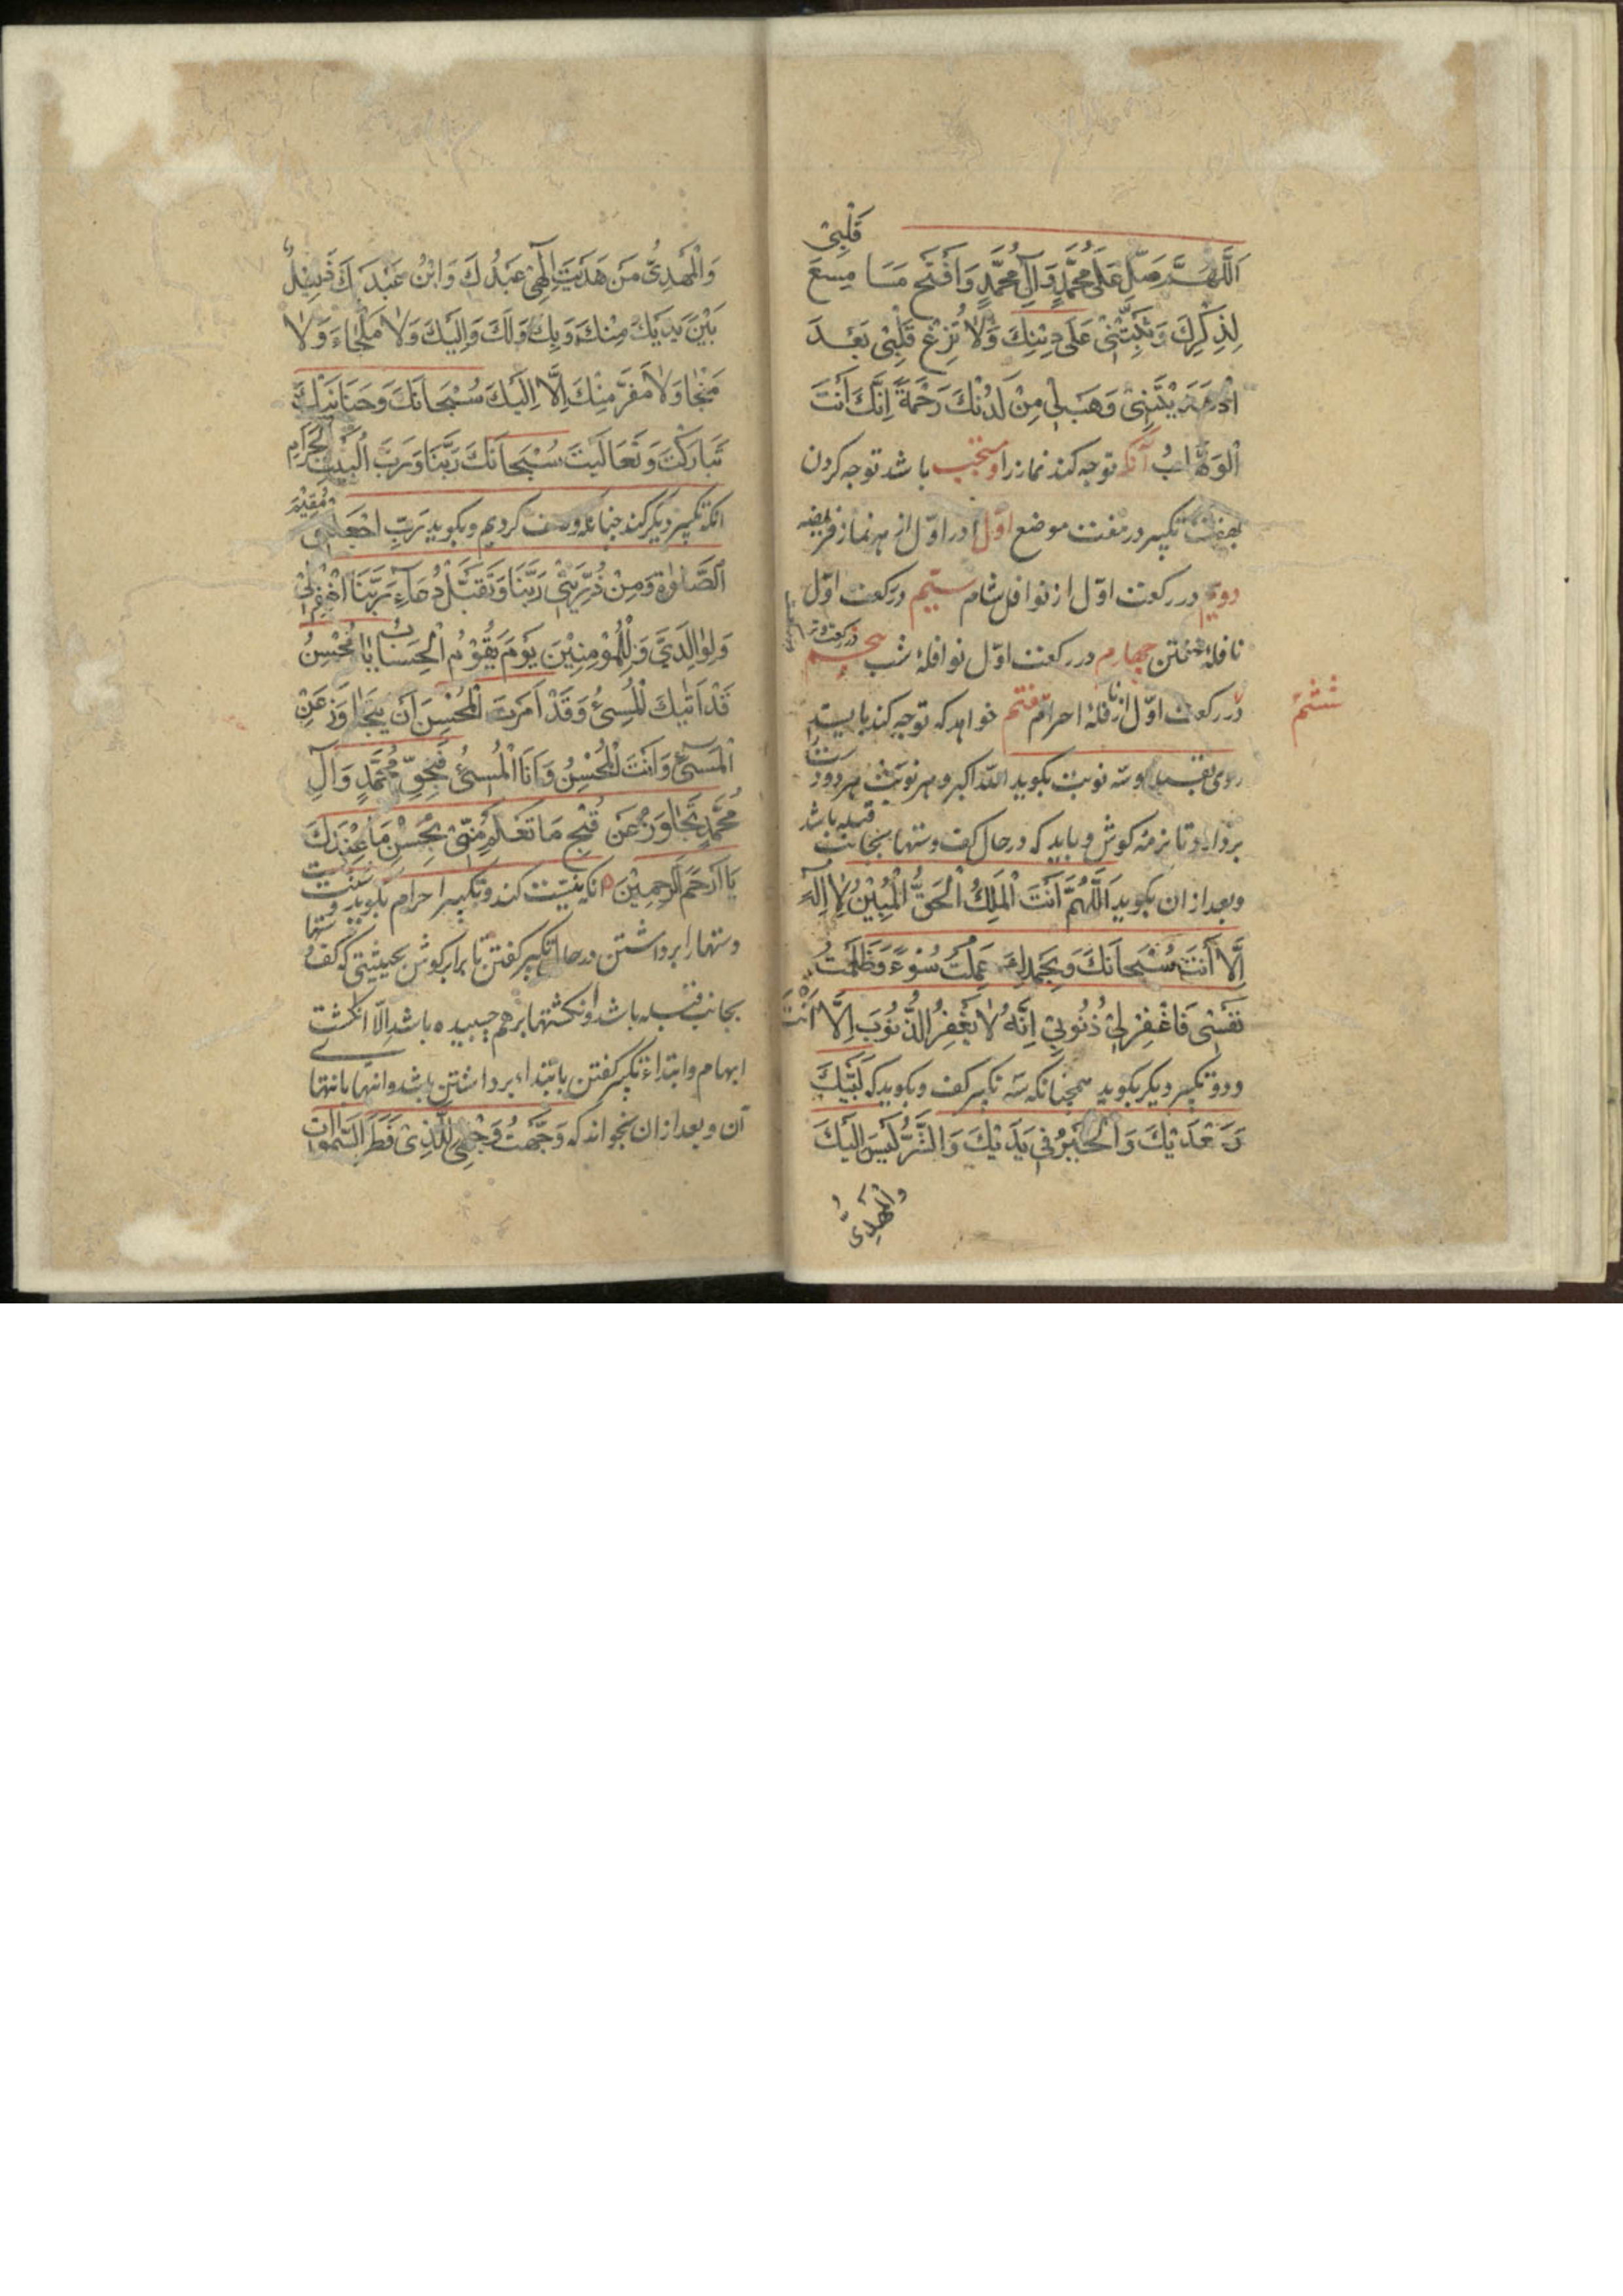 اَللّٰهُمَّ صَلِّ عَلٰى مُحَمَّدٍ وَآلِ مُحَمَّدٍ وَافْتَحْ مَسَامِعَ قَلْبِىْ
لِذِكْرِكَ وَثَبِّتْنِىْ عَلٰى دِيْنِكَ وَلاٰ تُزِغْ قَلْبِىْ بَعْدَ
اِذْ هَدَيْتَنِىْ وَهَبْ لِىْ مِنْ لَدُنْكَ رَحْمَةً اِنَّكَ اَنْتَ
الْوَهَّابُ آنکه توجه کند نماز را و مستحب باشد توجه کردن
بهفت تکبیر در هفت موضع اوّل در اوّل از هر نماز فریضه
دویم در رکعت اوّل از نوافل شام سیّم در رکعت اوّل
نافلهٔ خفتن چهارم در رکعت اوّل نوافلهٔ شب پنجم در رکعت وتر
ششم
در رکعت اوّل از نافلهٔ احرام هفتم خواهد که توجه کند بایستد
روی بقبله و سه نوبت بکوید اللّه اکبر و هر نوبت هر دو دست
بردارد تا نرمه کوش و باید که در حال کف دستها بجانب قبله باشد
و بعد از ان بکوید اَللّٰهُمَّ اَنْتَ الْمَلِكُ الْحَقُّ الْمُبِيْنُ لاٰ اِلٰهَ
اِلَّا اَنْتَ سُبْحَانَكَ وَبِحَمْدِكَ عَمِلْتُ سُوْءً وَظَلَمْتُ
نَفْسِىْ فَاغْفِرْ لِىْ ذُنُوبِىْ اِنَّهُ لاٰ يَغْفِرُ الذُّنُوْبَ اِلَّا اَنْتَ
و دو تکبیر دیکر بکوید همچنانکه سه تکبیر کفت و بکوید که لَبَّيْكَ
وَسَعْدَيْكَ وَالْخَيْرُ فِىْ يَدَيْكَ وَالشَّرُّ لَيْسَ اِلَيْكَ
وَالْمَهْدِىُّ
وَالْمَهْدِىُّ مَنْ هَدَيْتَ اِلٰهِىْ عَبْدُكَ وَابْنُ عَبْدِكَ ذَلِيْلٌ
بَيْنَ يَدَيْكَ مِنْكَ وَبِكَ وَلَكَ وَاِلَيْكَ وَلاٰ مَلْجَاءَ وَلاٰ
مَنْجَا وَلاٰ مَفَرَّ مِنْكَ اِلَّا اِلَيْكَ سُبْحَانَكَ وَحَنَانَيْكَ
تَبَارَكْتَ وَتَعَالَيْتَ سُبْحَانَكَ رَبَّنَا وَرَبَّ الْبَيْتِ الْحَرَامِ
انکه تکبیر دیکر کند چنانکه وصف کردیم و بکوید رَبِّ اجْعَلْنِىْ مُقِيْمَ
الصَّلٰوةِ وَمِنْ ذُرِّيَتِىْ رَبَّنَا وَتَقَبَّلْ دُعَاءِ رَبَّنَا اغْفِرْ لِىْ
وَلِوٰالِدَىَّ وَلِلْمُؤْمِنِيْنَ يَوْمَ يَقُوْمُ الْحِسَابُ يَا مُحْسِنُ
قَدْ اَتٰيكَ الْمُسِىْءُ وَقَدْ اَمَرْتَ الْمُحْسِنَ اَنْ يَتَجَاوَزَ عَنِ
الْمُسِىْءِ وَاَنْتَ الْمُحْسِنُ وَاَنَا الْمُسِىْءُ فَبِحَقِّ مُحَمَّدٍ وَآلِ
مُحَمَّدٍ تَجَاوَزْ عَنْ قُبْحِ مَا تَعْلَمُ مِنّىْ بِحُسْنِ مَا عِنْدَكَ
يَا اَرْحَمَ الرّٰحِمِيْنَ انکه نیت کند و تکبیر احرام بکوید و سنت
دستها را برداشتن در حال تکبیر کفتن تا برابر کوش بحیثیتی که کف دستها
بجانب قبله باشد و انکشتها بر هم چسبیده باشد اِلّا انکشت
ابهام و ابتداء تکبیر کفتن بابتداء برداشتن باشد و انتها بانتهای
آن و بعد از ان بخواند که وَجَّهْتُ وَجْهِىَ لِلَّذِىْ فَطَرَ السَّمٰوَاتِ